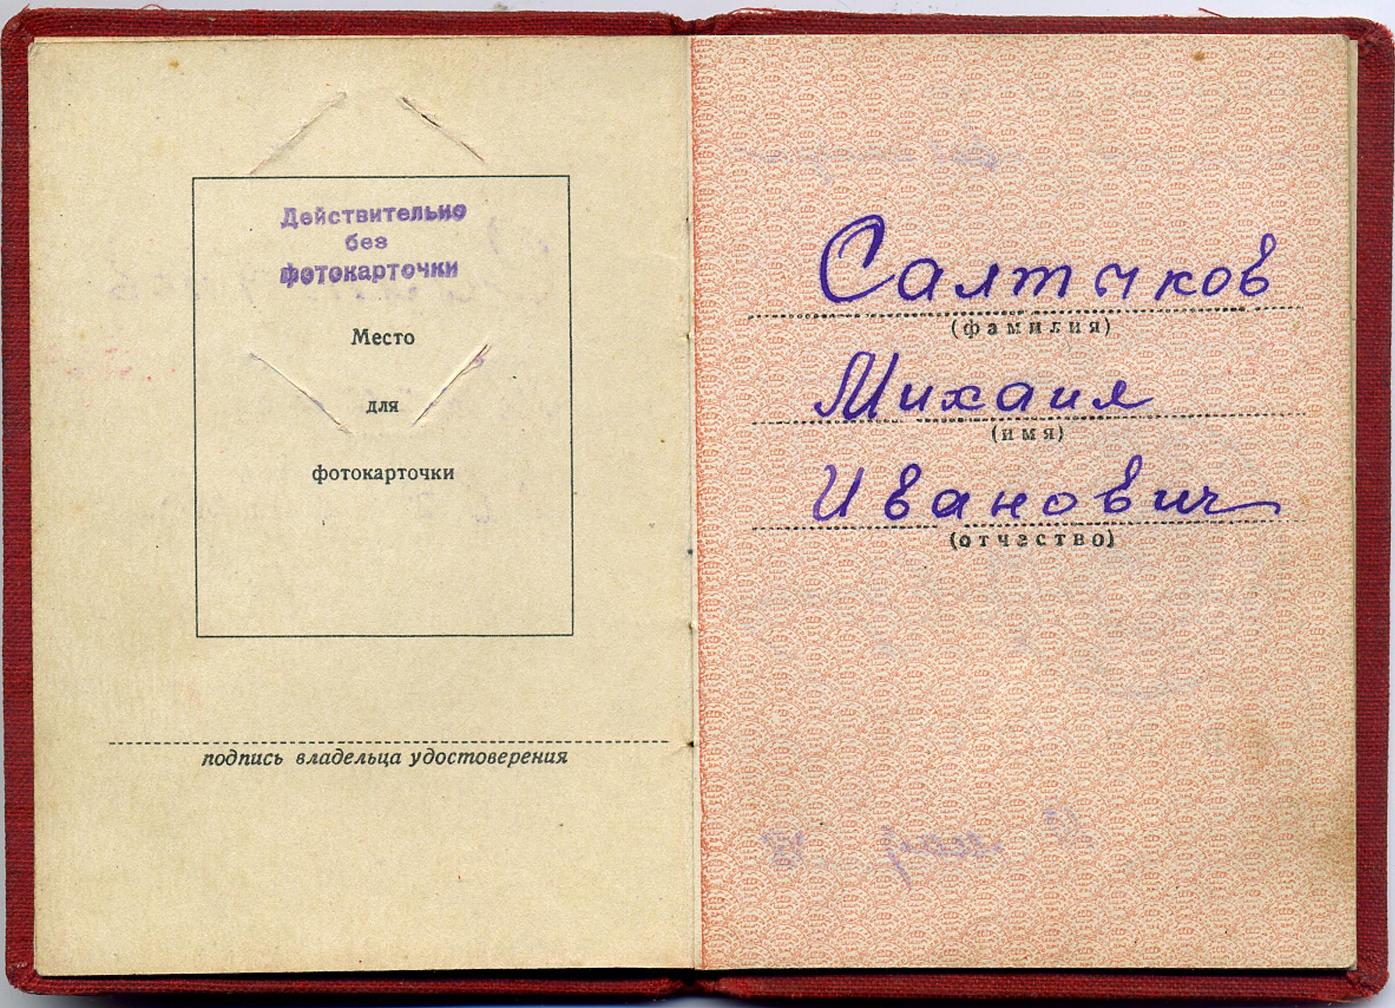 Действительно
без
фотокарточки
Место
для
фотокарточки
подпись владельца удостоверения
Салтыков
(фамилия)
Михаил
(имя)
Иванович
(отчество)